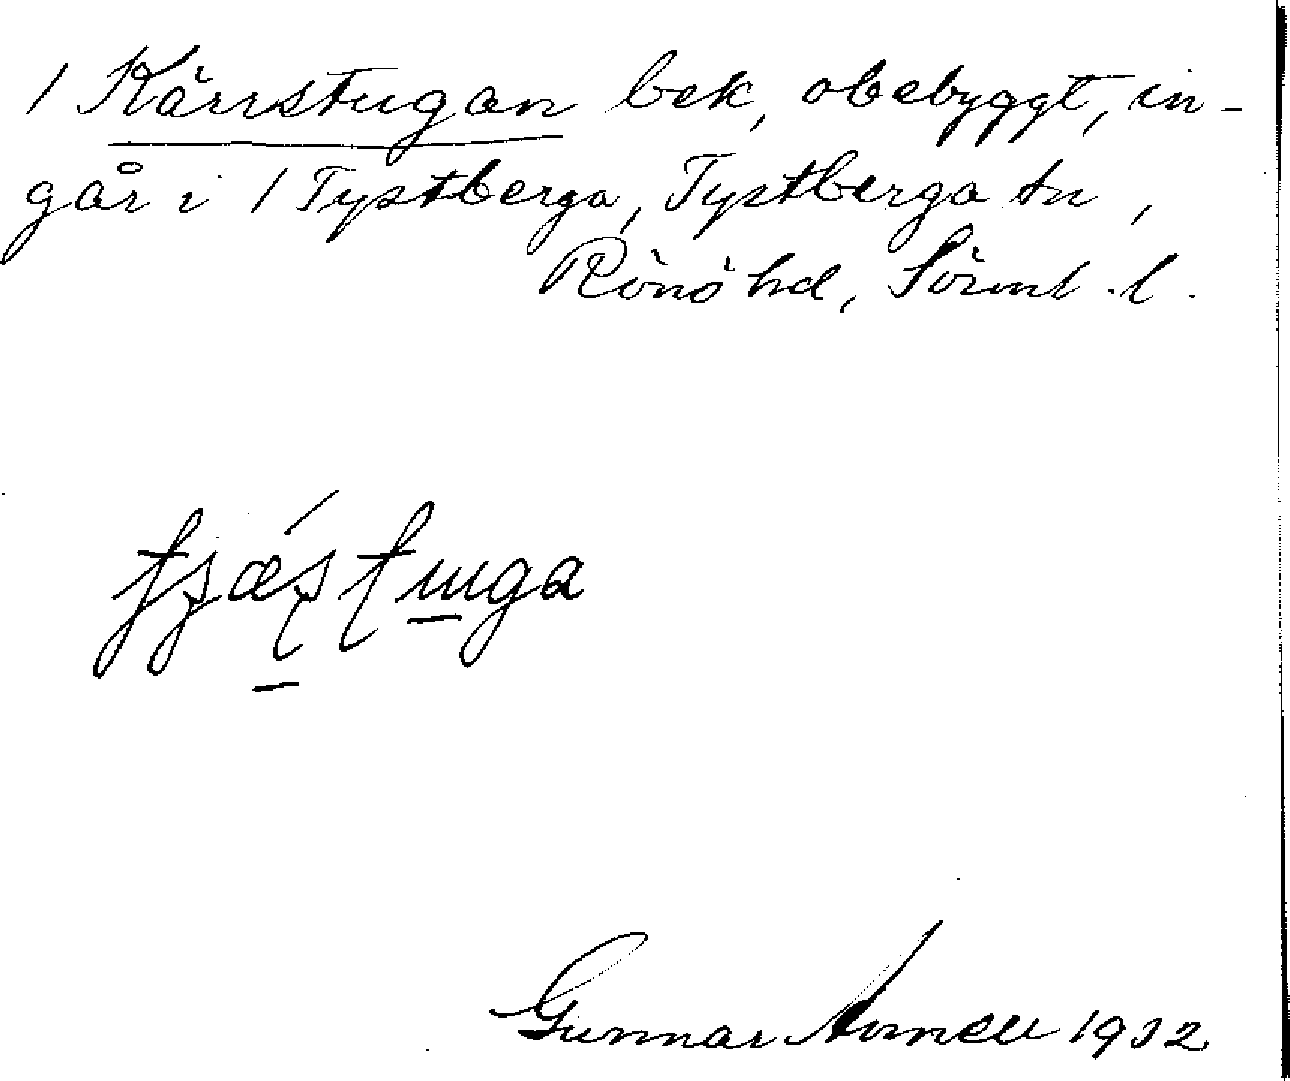 1 Kärrstugan bek, obebyggt, in-
går i 1 Tystberga, Tystberga sn,
Rönö hd, Sörml. l.
Gunnar Arnell 1932